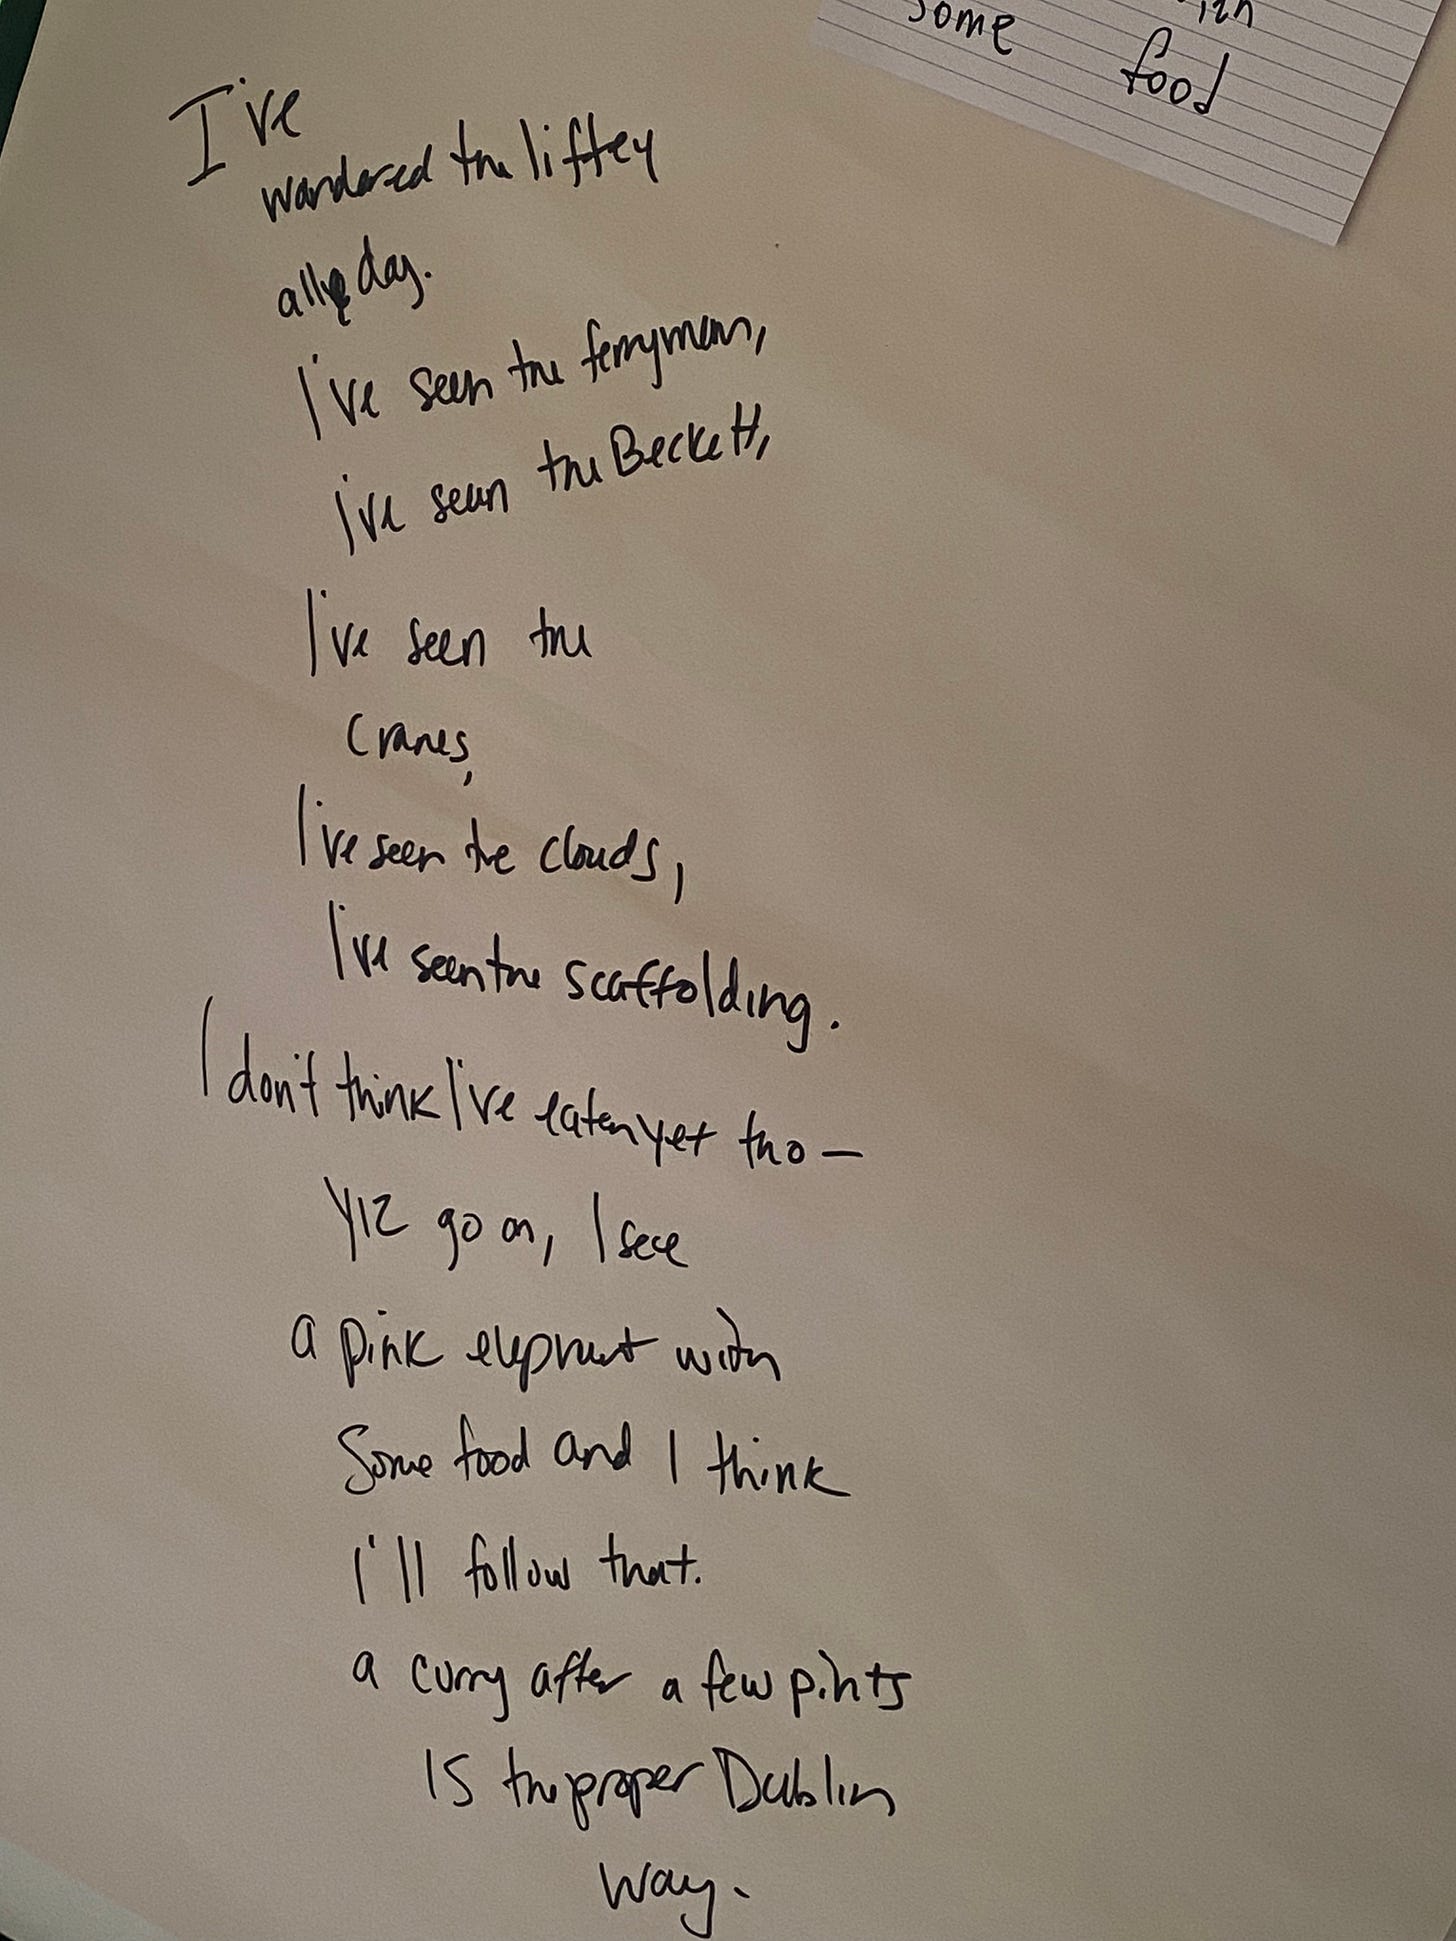 some
food
I've
wandered the liffey
all day.
I've seen the ferryman,
i've seen the Beckett,
I've seen the
cranes,
I've seen the clouds,
I've seen the scaffolding.
I don't think I've eaten yet tho —
Yiz go on, I see
a pink elephant with
some food and I think
I'll follow that.
a curry after a few pints
Is the proper Dublin
way.